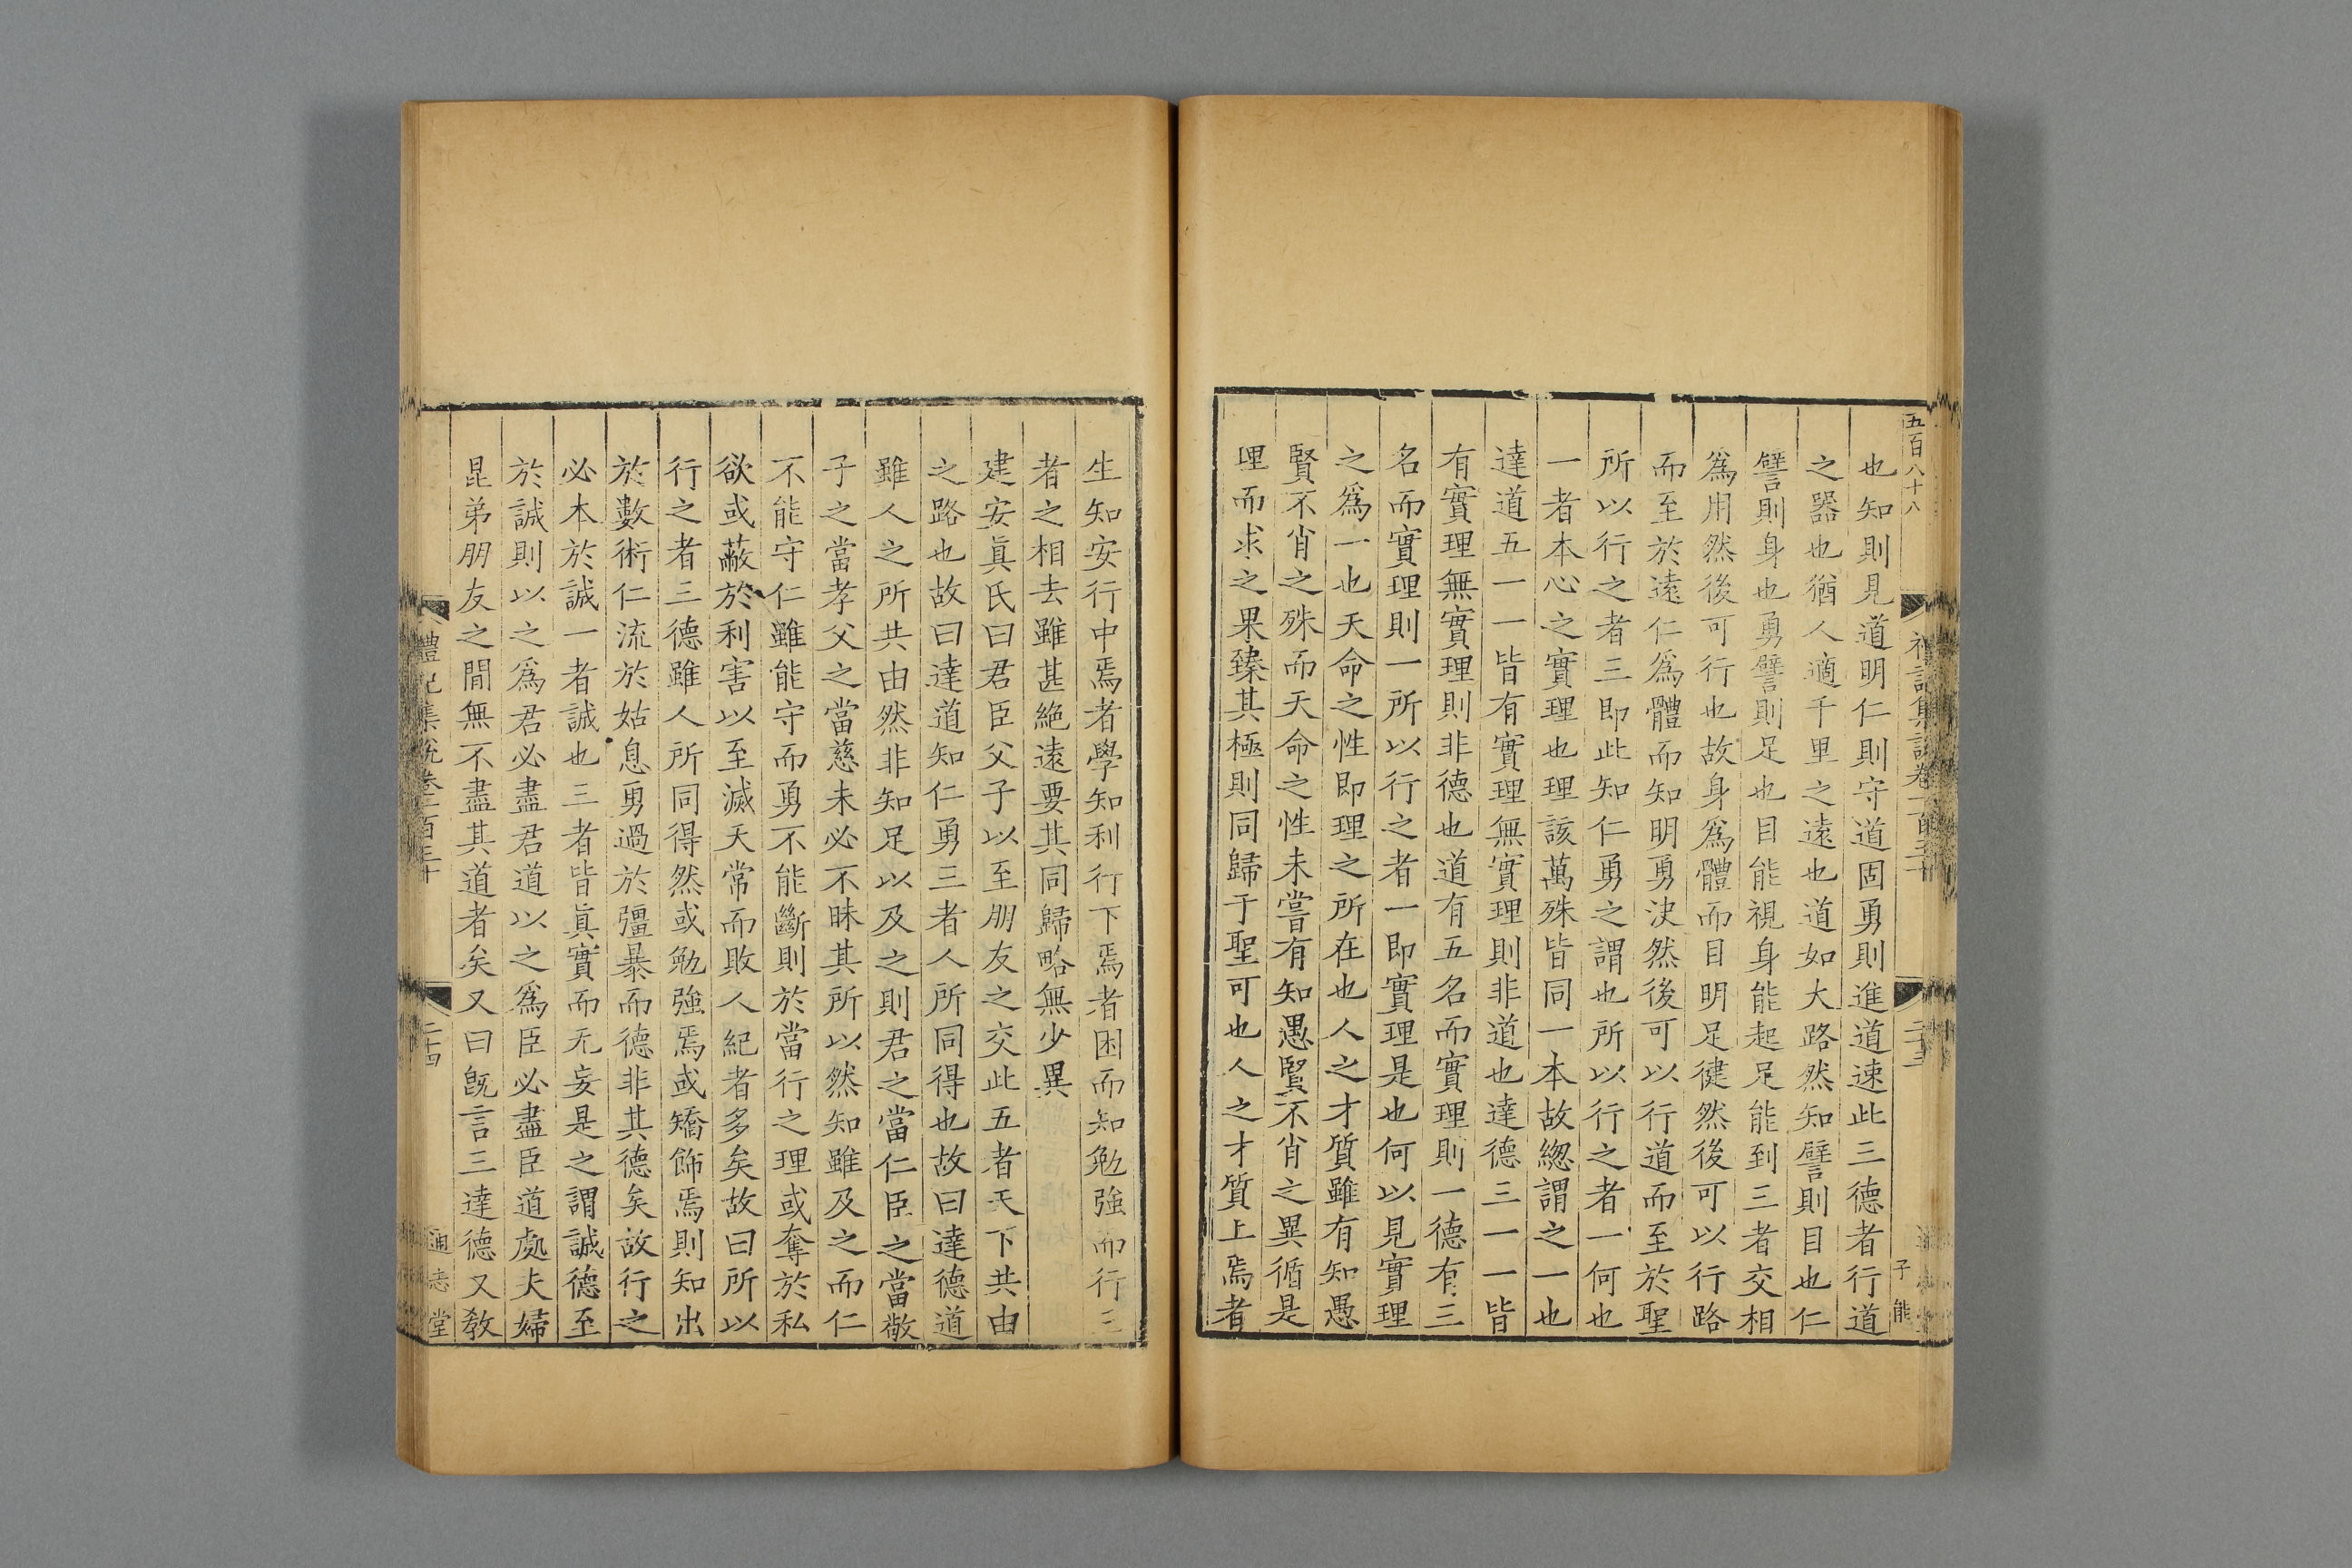 五百八十八
禮記集說卷一百三十
二十三
子能
也知則見道明仁則守道固勇則進道速此三德者行道
之器也猶人適千里之遠也道如大路然知譬則目也仁
譬則身也勇譬則足也目能視身能起足能到三者交相
爲用然後可行也故身爲體而目明足健然後可以行路
而至於遠仁爲體而知明勇決然後可以行道而至於聖
所以行之者三即此知仁勇之謂也所以行之者一何也
一者本心之實理也理該萬殊皆同一本故總謂之一也
達道五一一皆有實理無實理則非道也達德三一一皆
有實理無實理則非德也道有五名而實理則一德有三
名而實理則一所以行之者一即實理是也何以見實理
之爲一也天命之性即理之所在也人之才質雖有知愚
賢不肖之殊而天命之性未嘗有知愚賢不肖之異循是
理而求之果臻其極則同歸于聖可也人之才質上焉者
生知安行中焉者學知利行下焉者困而知勉強而行三
者之相去雖甚絕遠要其同歸略無少異
建安眞氏曰君臣父子以至朋友之交此五者天下共由
之路也故曰達道知仁勇三者人所同得也故曰達德道
雖人之所共由然非知足以及之則君之當仁臣之當敬
子之當孝父之當慈未必不昧其所以然知雖及之而仁
不能守仁雖能守而勇不能斷則於當行之理或奪於私
欲或蔽於利害以至滅天常而敗人紀者多矣故曰所以
行之者三德雖人所同得然或勉強焉或矯飾焉則知出
於數術仁流於姑息勇過於彊暴而德非其德矣故行之
必本於誠一者誠也三者皆眞實而无妄是之謂誠德至
於誠則以之爲君必盡君道以之爲臣必盡臣道處夫婦
昆弟朋友之間無不盡其道者矣又曰旣言三達德又敎
禮記集說卷一百三十
二十四
通志堂